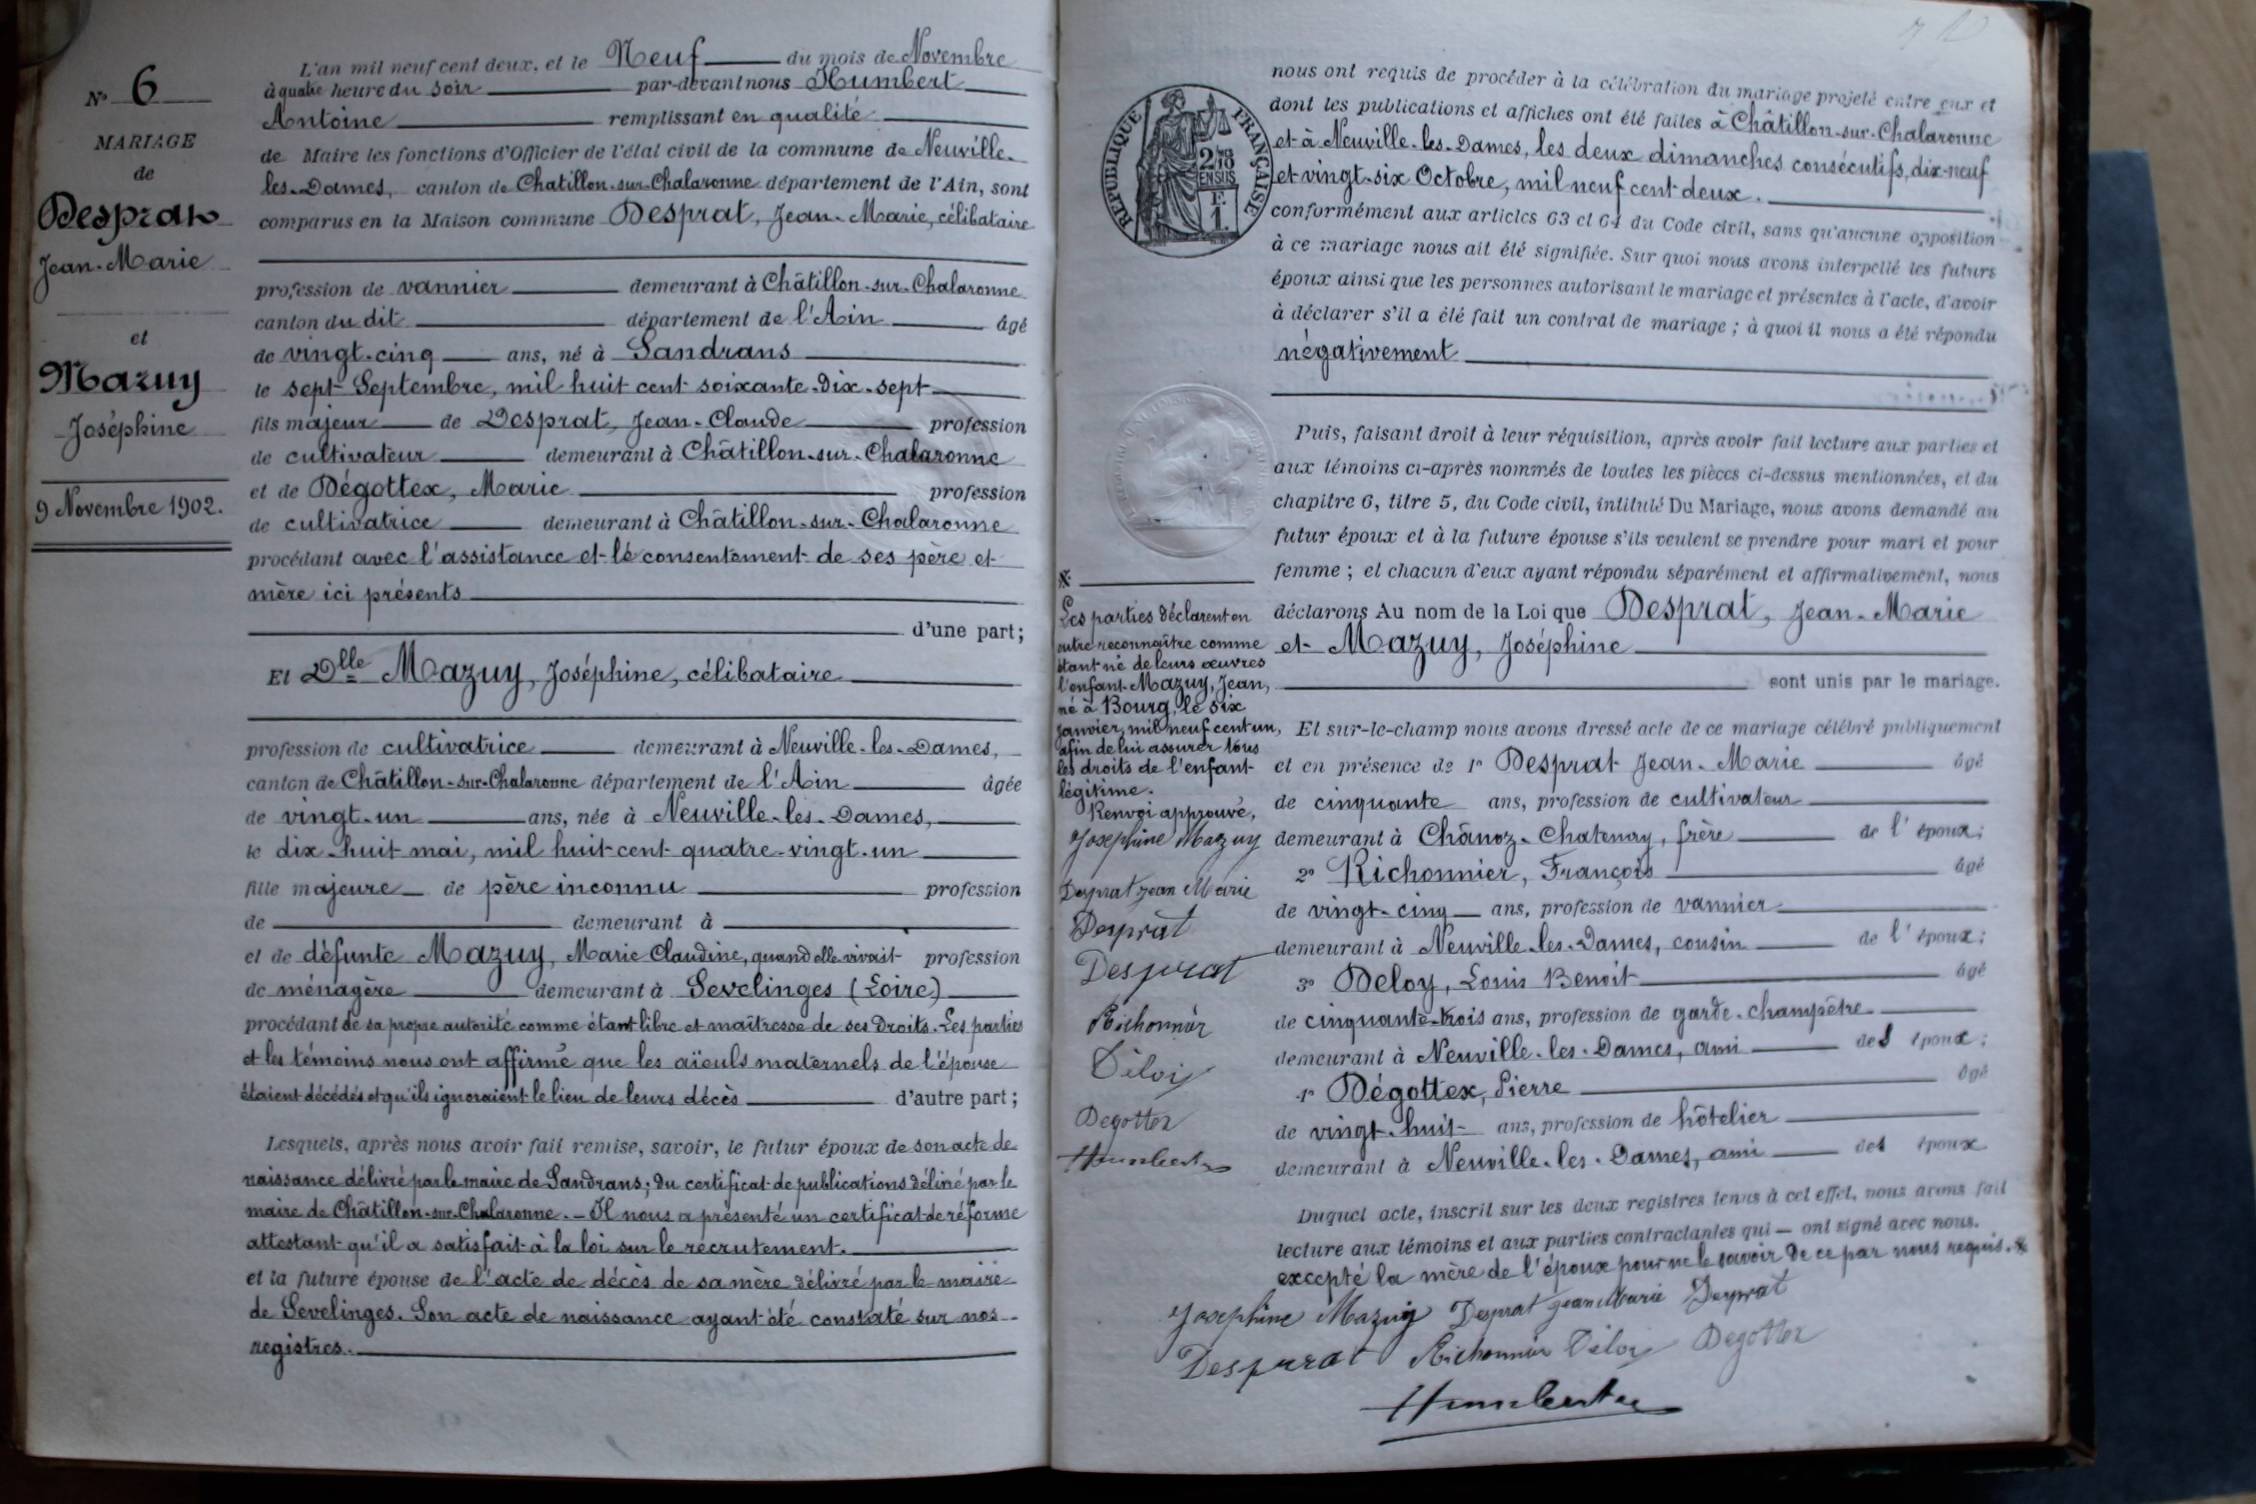 N° 6
MARIAGE
de
Desprat
Jean-Marie
et
Mazuy
Joséphine
9 Novembre 1902.
L'an mil neuf cent deux, et le Neuf du mois de Novembre
à quatre heure du soir par-devant nous Humbert
Antoine remplissant en qualité
de Maire les fonctions d'Officier de l'état civil de la commune de Neuville-
les-Dames, canton de Chatillon-sur-Chalaronne département de l'Ain, sont
comparus en la Maison commune Desprat, Jean-Marie, célibataire
profession de vannier demeurant à Châtillon-sur-Chalaronne
canton du dit département de l'Ain âgé
de vingt-cinq ans, né à Sandrans
le sept Septembre, mil huit cent soixante-dix-sept
fils majeur de Desprat, Jean-Claude profession
de cultivateur demeurant à Châtillon-sur-Chalaronne
et de Dégottex, Marie profession
de cultivatrice demeurant à Châtillon-sur-Chalaronne
procédant avec l'assistance et le consentement de ses père et
mère ici présents
d'une part;
Et Dlle Mazuy, Joséphine, célibataire
profession de cultivatrice demeurant à Neuville-les-Dames,
canton de Châtillon-sur-Chalaronne département de l'Ain âgée
de vingt-un ans, née à Neuville-les-Dames,
le dix-huit mai, mil huit-cent quatre-vingt-un
fille majeure de père inconnu profession
de demeurant à
et de défunte Mazuy, Marie Claudine, quand elle vivait profession
de ménagère demeurant à Sevelinges (Loire)
procédant de sa propre autorité comme étant libre et maîtresse de ses droits. Les parties
et les témoins nous ont affirmé que les aïeuls maternels de l'épouse
étaient décédés et qu'ils ignoraient le lieu de leurs décès d'autre part;
Lesquels, après nous avoir fait remise, savoir, le futur époux de son acte de
naissance délivré par le maire de Sandrans; du certificat de publications délivré par le
maire de Châtillon-sur-Chalaronne. - Il nous a présenté un certificat de réforme
attestant qu'il a satisfait à la loi sur le recrutement.
et la future épouse de l'acte de décès de sa mère délivré par le maire
de Sevelinges. Son acte de naissance ayant été constaté sur nos
registres.
RÉPUBLIQUE FRANÇAISE
2/10 EN SUS
F. 1.
nous ont requis de procéder à la célébration du mariage projeté entre eux et
dont les publications et affiches ont été faites à Châtillon-sur-Chalaronne
et à Neuville-les-Dames, les deux dimanches consécutifs, dix-neuf
et vingt-six Octobre, mil neuf cent deux.
conformément aux articles 63 et 64 du Code civil, sans qu'aucune opposition
à ce mariage nous ait été signifiée. Sur quoi nous avons interpellé les futurs
époux ainsi que les personnes autorisant le mariage et présentes à l'acte, d'avoir
à déclarer s'il a été fait un contrat de mariage ; à quoi il nous a été répondu
négativement
Puis, faisant droit à leur réquisition, après avoir fait lecture aux parties et
aux témoins ci-après nommés de toutes les pièces ci-dessus mentionnées, et du
chapitre 6, titre 5, du Code civil, intitulé Du Mariage, nous avons demandé au
futur époux et à la future épouse s'ils veulent se prendre pour mari et pour
femme ; et chacun d'eux ayant répondu séparément et affirmativement, nous
déclarons Au nom de la Loi que Desprat, Jean-Marie
et Mazuy, Joséphine
sont unis par le mariage.
Et sur-le-champ nous avons dressé acte de ce mariage célébré publiquement
et en présence de 1° Desprat Jean-Marie âgé
de cinquante ans, profession de cultivateur
demeurant à Chânoz-Chatenay, frère de l'époux;
2° Richonnier, François âgé
de vingt-cinq ans, profession de vannier
demeurant à Neuville-les-Dames, cousin de l'époux;
3° Deloy, Louis Benoit âgé
de cinquante-trois ans, profession de garde-champêtre
demeurant à Neuville-les-Dames, ami des époux;
4° Dégottex, Pierre âgé
de vingt-huit ans, profession de hôtelier
demeurant à Neuville-les-Dames, ami des époux
Duquel acte, inscrit sur les deux registres tenus à cet effet, nous avons fait
lecture aux témoins et aux parties contractantes qui ont signé avec nous.
excepté la mère de l'époux pour ne le savoir de ce par nous requis.
Josephine Mazuy Desprat jean Marie Desprat
Desprat Richonnier Déloy Degottex
Humbert
Les parties déclarent en
outre reconnaître comme
étant né de leurs œuvres
l'enfant Mazuy, Jean,
né à Bourg, le six
janvier, mil neuf cent un,
afin de lui assurer tous
les droits de l'enfant
légitime.
Renvoi approuvé,
Josephine Mazuy
Desprat jean Marie
Desprat
Desprat
Richonnier
Déloy
Degottex
Humbert